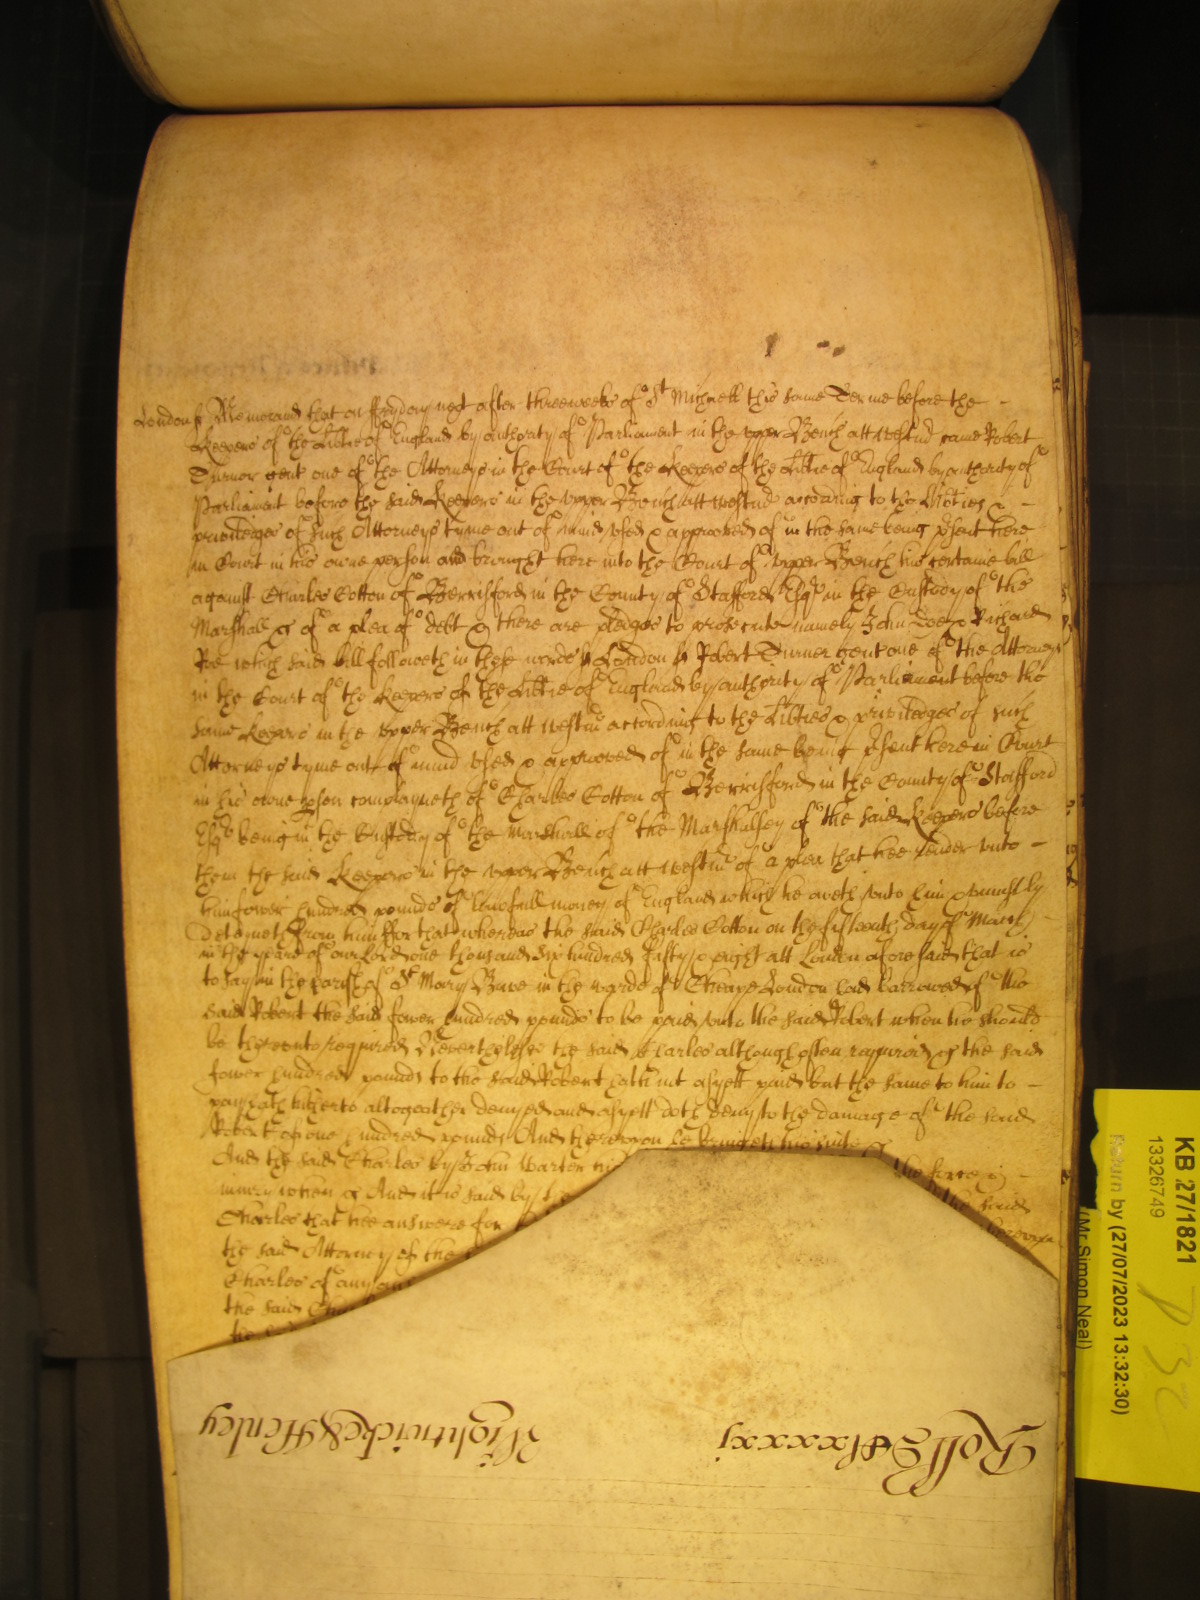 London ss Memorand that on ffryday next after three weekes of St Michaell this same Terme before the
Keepers of the Libtie of England by authority of Parliament in the vpper Bench att Westm̃ came Robert
Turnor gent one of the Attorneys in the Court of the Keepers of the Libtie of England by authority of
Parliament before the said Keepers in the vpper Bench att Westm̃ according to the Libties &
priviledges of such Attorneys tyme out of mind vsed & approoved of in the same being p̃sent here
in Court in his owne person and brought here into the Court of vpper Bench his certaine bill
against Charles Cotton of Berrisford in the County of Stafford Esqr in the Custody of the
Marshall &c of a plea of debt & there are pledges to prosecute namely John Doe & Richard
Roe which said bill followeth in these words ss London ss Robert Turner gent one of the Attorneys
in the Court of the Keepers of the Libtie of England by authority of Parliament before the
same Keepers in the vpper Bench att Westm̃ according to the Libties & priviledges of such
Attorneys tyme out of mind vsed & approoved of in the same being p̃sent here in Court
in his owne pson complayneth of Charles Cotton of Berrisford in the County of Stafford
Esqr being in the Custody of the Marshall of the Marshalsey of the said Keepers before
them the said Keepers in the vpper Bench att Westm̃ of a plea that hee render vnto
him fower hundred pounds of lawfull money of England which he oweth vnto him & vniustly
detayneth from him ffor that whereas the said Charles Cotton on the fifteenth day of March
in the yeare of our Lord one thousand Six hundred fifty & eight att London aforesaid that is
to say in the parish of St Mary Bowe in the warde of Cheape London had borrowed of the
said Robert the said fower hundred pounds to be paid vnto the said Robert when he should
be therevnto required Neverthelesse the said Charles although often required &c the said
fower hundred pounds to the said Robert hath not as yett paid but the same to him to
pay hath hitherto altogeather denyed and as yett doth deny to the damage of the said
Robert of one hundred pounds And therevpon he bringeth his suite &c
And the said Charles by John Warten his the force &
iniury when &c And it is said by the said
Charles that hee answere for therevpon
the said Attorney of the
Charles of any
the said
the said
Wightwicke & Henley
Roll
KB 27/1821
13326749
Return by (27/07/2023 13:32:30)
(Mr Simon Neal)
P 32